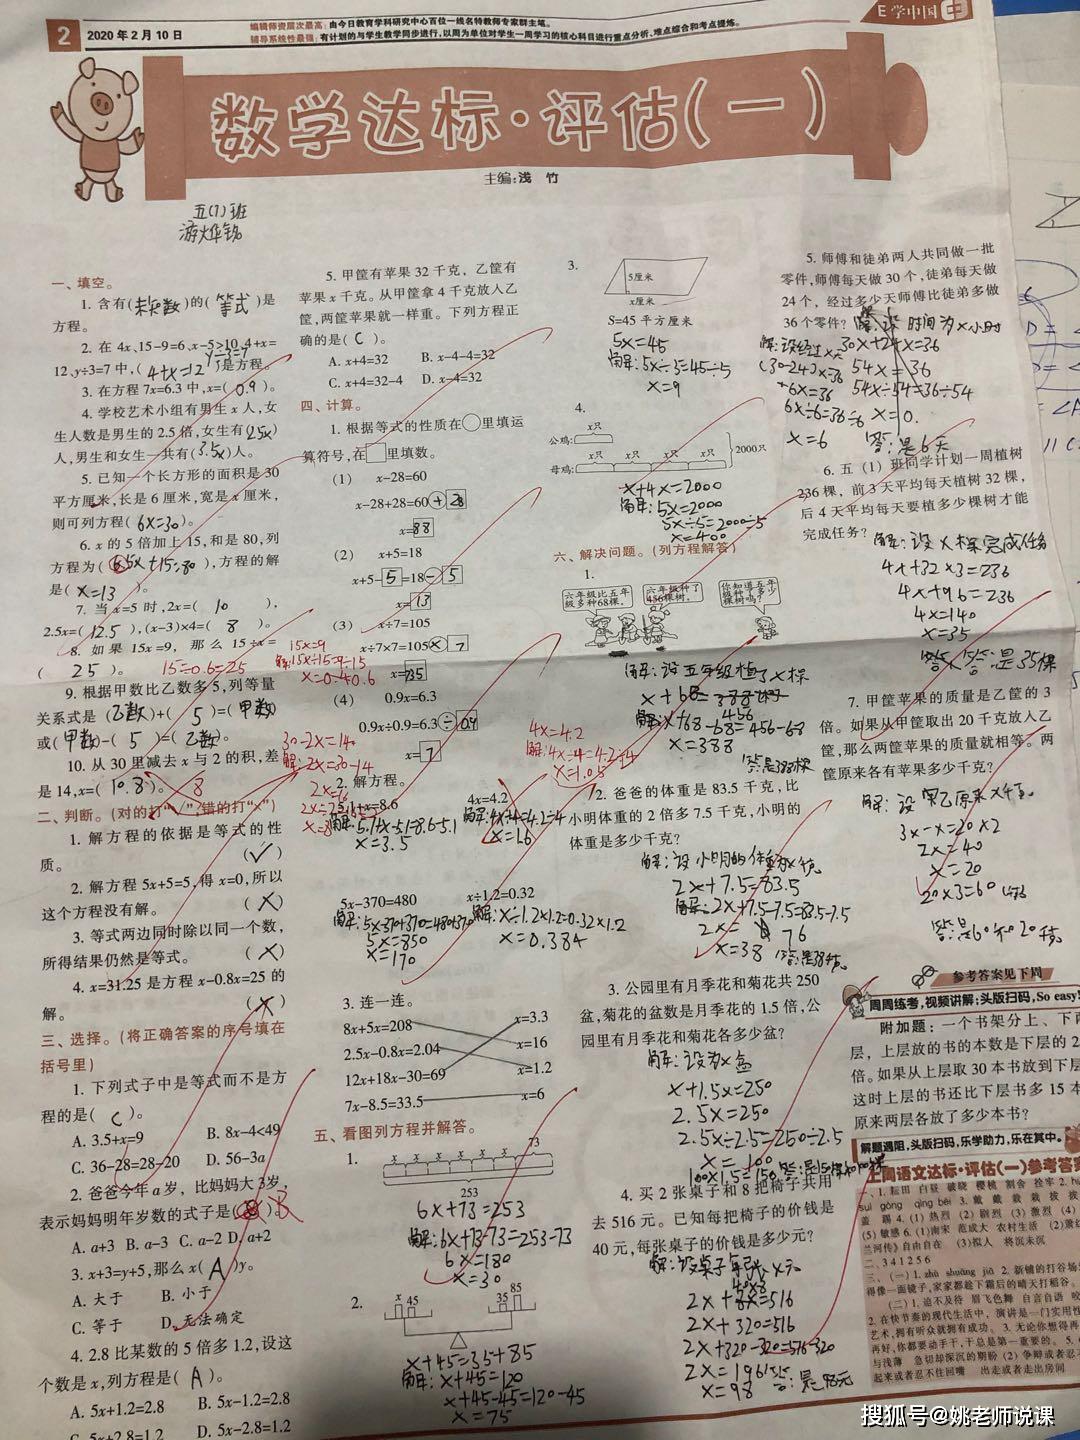 2
2020年2月10日
编辑师资层次最高:由今日教育学科研究中心百位一线名特教师专家群主笔。
辅导系统性最强:有计划的与学生教学同步进行,以周为单位对学生一周学习的核心科目进行重点分析、难点综合和考点提炼。
E学中国
数学达标·评估(一)
主编:浅 竹
五(1)班
一、填空。
1. 含有(未知数)的(等式)是
方程。
2. 在 4x、15-9=6、x-5>10、4+x=
12、y÷3=7 中,( 4+x=12 y÷3=7 )是方程。
3. 在方程 7x=6.3 中,x=( 0.9 )。
4. 学校艺术小组有男生 x 人,女
生人数是男生的 2.5 倍,女生有(2.5x)
人,男生和女生一共有(3.5x)人。
5. 已知一个长方形的面积是 30
平方厘米,长是 6 厘米,宽是 x 厘米,
则可列方程( 6x=30 )。
6. x 的 5 倍加上 15,和是 80,列
方程为( 5x+15=80 ),方程的解
是( x=13 )。
7. 当 x=5 时,2x=( 10 ),
2.5x=( 12.5 ),(x-3)×4=( 8 )。
8. 如果 15x=9,那么 15÷x=
( 25 )。
15÷0.6=25
15x=9
解:15x÷15=9÷15
x=0.6
9. 根据甲数比乙数多 5,列等量
关系式是(乙数)+( 5 )=(甲数)
或(甲数)-( 5 )=(乙数)。
10. 从 30 里减去 x 与 2 的积,差
是 14,x=( 10.8 )。 8
30-2x=14
解:2x=30-14
2x=16
x=8
二、判断。(对的打“√”,错的打“×”)
1. 解方程的依据是等式的性
质。 (√)
2. 解方程 5x+5=5,得 x=0,所以
这个方程没有解。 (×)
3. 等式两边同时除以同一个数,
所得结果仍然是等式。 (×)
4. x=31.25 是方程 x-0.8x=25 的
解。 (×)
三、选择。(将正确答案的序号填在
括号里)
1. 下列式子中是等式而不是方
程的是( C )。
A. 3.5+x=9 B. 8x-4<49
C. 36-28=28-20 D. 56-3a
2. 爸爸今年 a 岁,比妈妈大 3 岁,
表示妈妈明年岁数的式子是( )。B
A. a+3 B. a-3 C. a-2 D. a+2
3. x+3=y+5,那么 x( A )y。
A. 大于 B. 小于
C. 等于 D. 无法确定
4. 2.8 比某数的 5 倍多 1.2,设这
个数是 x,列方程是( A )。
A. 5x+1.2=2.8 B. 5x-1.2=2.8
C. 5x+2.8=1.2 D. 5x-2.8=1.2
5. 甲筐有苹果 32 千克,乙筐有
苹果 x 千克。从甲筐拿 4 千克放人乙
筐,两筐苹果就一样重。下列方程正
确的是( C )。
A. x+4=32 B. x-4-4=32
C. x+4=32-4 D. x-4=32
四、计算。
1. 根据等式的性质在○里填运
算符号,在□里填数。
(1) x-28=60
x-28+28=60+28
x=88
(2) x+5=18
x+5-5=18-5
x=13
(3) x÷7=105
x÷7×7=105×7
x=735
(4) 0.9x=6.3
0.9x÷0.9=6.3÷0.9
x=7
2. 解方程。
5.1+x=8.6
解:5.1+x-5.1=8.6-5.1
x=3.5
4x=4.2
解:4x÷4=4.2÷4
x=1.6
4x=4.2
解:4x÷4=4.2÷4
x=1.05
5x-370=480
解:5x-370+370=480+370
5x=850
x=170
x÷1.2=0.32
解:x÷1.2×1.2=0.32×1.2
x=0.384
3. 连一连。
8x+5x=208 x=3.3
2.5x-0.8x=2.04 x=16
12x+18x-30=69 x=1.2
7x-8.5=33.5 x=6
五、看图列方程并解答。
1.
x x x x x x 73
253
6x+73=253
解:6x+73-73=253-73
6x=180
x=30
2.
x 45 35 85
x+45=35+85
解:x+45=120
x+45-45=120-45
x=75
3.
5厘米
x厘米
S=45 平方厘米
5x=45
解:5x÷5=45÷5
x=9
4.
x只
公鸡:
x只 x只 x只 x只
母鸡:
2000只
x+4x=2000
解:5x=2000
5x÷5=2000÷5
x=400
六、解决问题。(列方程解答)
1.
六年级比五年
级多种68棵。
六年级种了
456棵树。
你知道五年
级种了多少
棵树吗?
解:设五年级植了x棵
x+68=456
解:x+68-68=456-68
x=388
答:是388棵
2. 爸爸的体重是 83.5 千克,比
小明体重的 2 倍多 7.5 千克,小明的
体重是多少千克?
解:设小明的体重为x千克
2x+7.5=83.5
解:2x+7.5-7.5=83.5-7.5
2x=76
x=38
答:是38千克
3. 公园里有月季花和菊花共 250
盆,菊花的盆数是月季花的 1.5 倍,公
园里有月季花和菊花各多少盆?
解:设为x盆
x+1.5x=250
2.5x=250
2.5x÷2.5=250÷2.5
x=100
100×1.5=150
4. 买 2 张桌子和 8 把椅子共用
去 516 元。已知每把椅子的价钱是
40 元,每张桌子的价钱是多少元?
2x+320=516
2x+320-320=516-320
2x=196
x=98
答:是98元
5. 师傅和徒弟两人共同做一批
零件,师傅每天做 30 个,徒弟每天做
24 个,经过多少天师傅比徒弟多做
36 个零件?
解:设时间为x小时
30x+24x=36
54x=36
54x÷54=36÷54
x=0.
解:设经过x天
(30-24)x=36
6x=36
6x÷6=36÷6
x=6
答:是6天
6. 五(1)班同学计划一周植树
236 棵,前 3 天平均每天植树 32 棵,
后 4 天平均每天要植多少棵树才能
完成任务?
解:设x棵完成任务
4x+32×3=236
4x+96=236
4x=140
x=35
答:是35棵
7. 甲筐苹果的质量是乙筐的 3
倍。如果从甲筐取出 20 千克放人乙
筐,那么两筐苹果的质量就相等。两
筐原来各有苹果多少千克?
解:设乙原来x千克
3x-x=20×2
2x=40
x=20
20×3=60
答:是60和20千克
参考答案见下周
周周练考,视频讲解;头版扫码,So easy!
附加题:一个书架分上、下两
层,上层放的书的本数是下层的 2
倍。如果从上层取 30 本书放到下层
这时上层的书还比下层多 15 本
原来两层各放了多少本书?
解题遇阻,头版扫码,乐学助力,乐在其中。
上周语文达标·评估(一)参考答案
搜狐号@姚老师说课